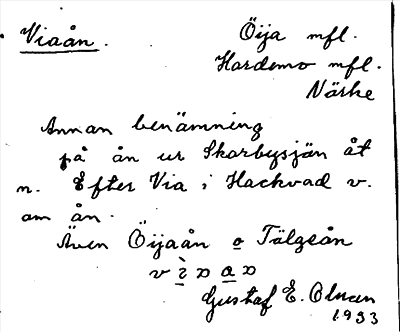 Viaån.
Öija mfl.
Hardemo mfl.
Närke
Annan benämning
på ån ur Skarbysjön åt
n. Efter Via i Hackvad v.
om ån.
Även Öijaån o Tälgeån
Gustaf E. Olman
1933